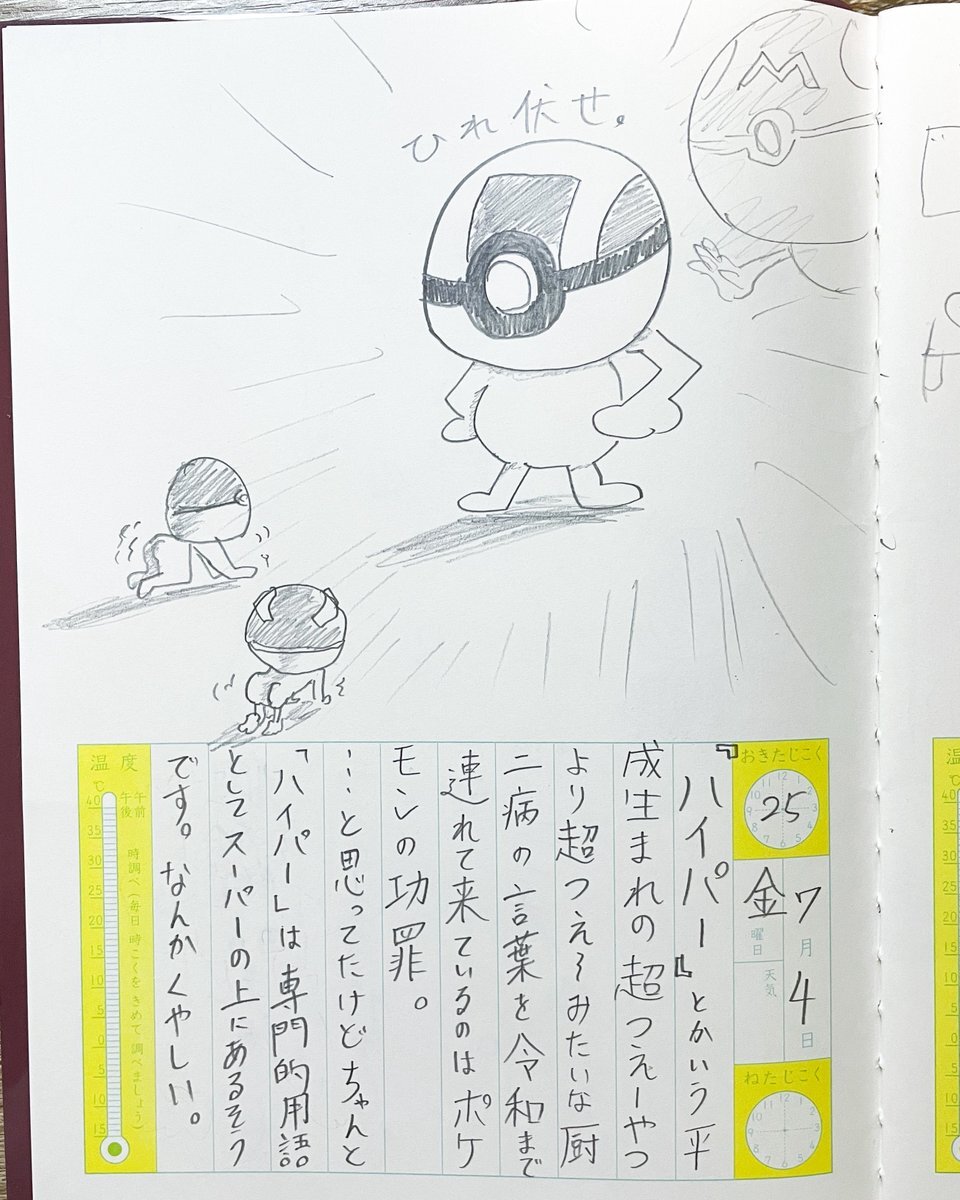 ひれ伏せ。
M
おきたじこく
25
7月4日
金曜日
天気
ねたじこく
『ハイパー』とかいう平
成生まれの超つえーやつ
より超つえ〜みたいな厨
二病の言葉を令和まで
連れて来ているのはポケ
モンの功罪。
…と思ってたけどちゃんと
「ハイパー」は専門的用語
としてスーパーの上にあるそう
です。なんかくやしい。
温度
℃
午前
午後
時調べ(毎日 時こくを きめて 調べましょう)
40
35
30
25
20
15
10
5
0
5
10
15